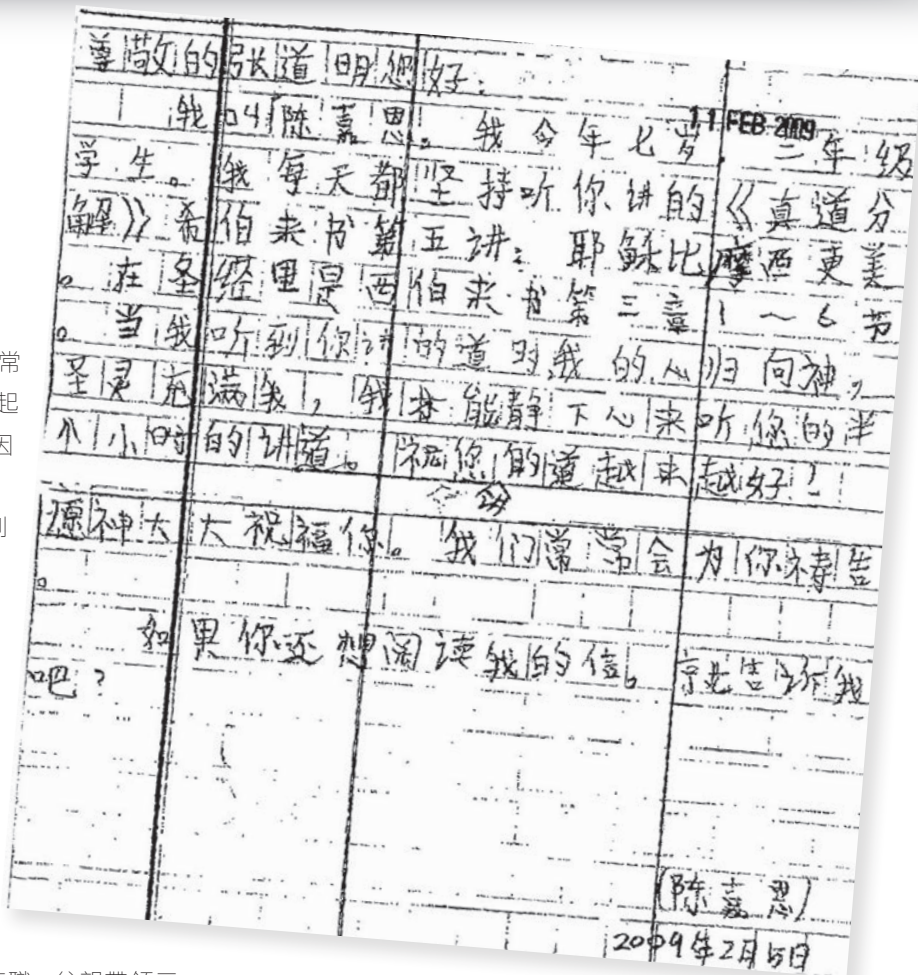 尊敬的张道明您好：
我叫陈嘉思。我今年七岁。二年级
11 FEB 2009
学生。我每天都坚持听你讲的《真道分
解》希伯来书第五讲：耶稣比摩西更美
。在圣经里是西伯来书第三章1～6节
。当我听到你讲的道时我的心归向神，
圣灵充满我，我才能静下心来听您的半
个小时的讲道。祝您的道越来越好！
愿神大大祝福你。我们常常会为你祷告
。
如果你还想阅读我的信。就告诉我
吧？
（陈嘉思）
2009年2月5日
常
起
因